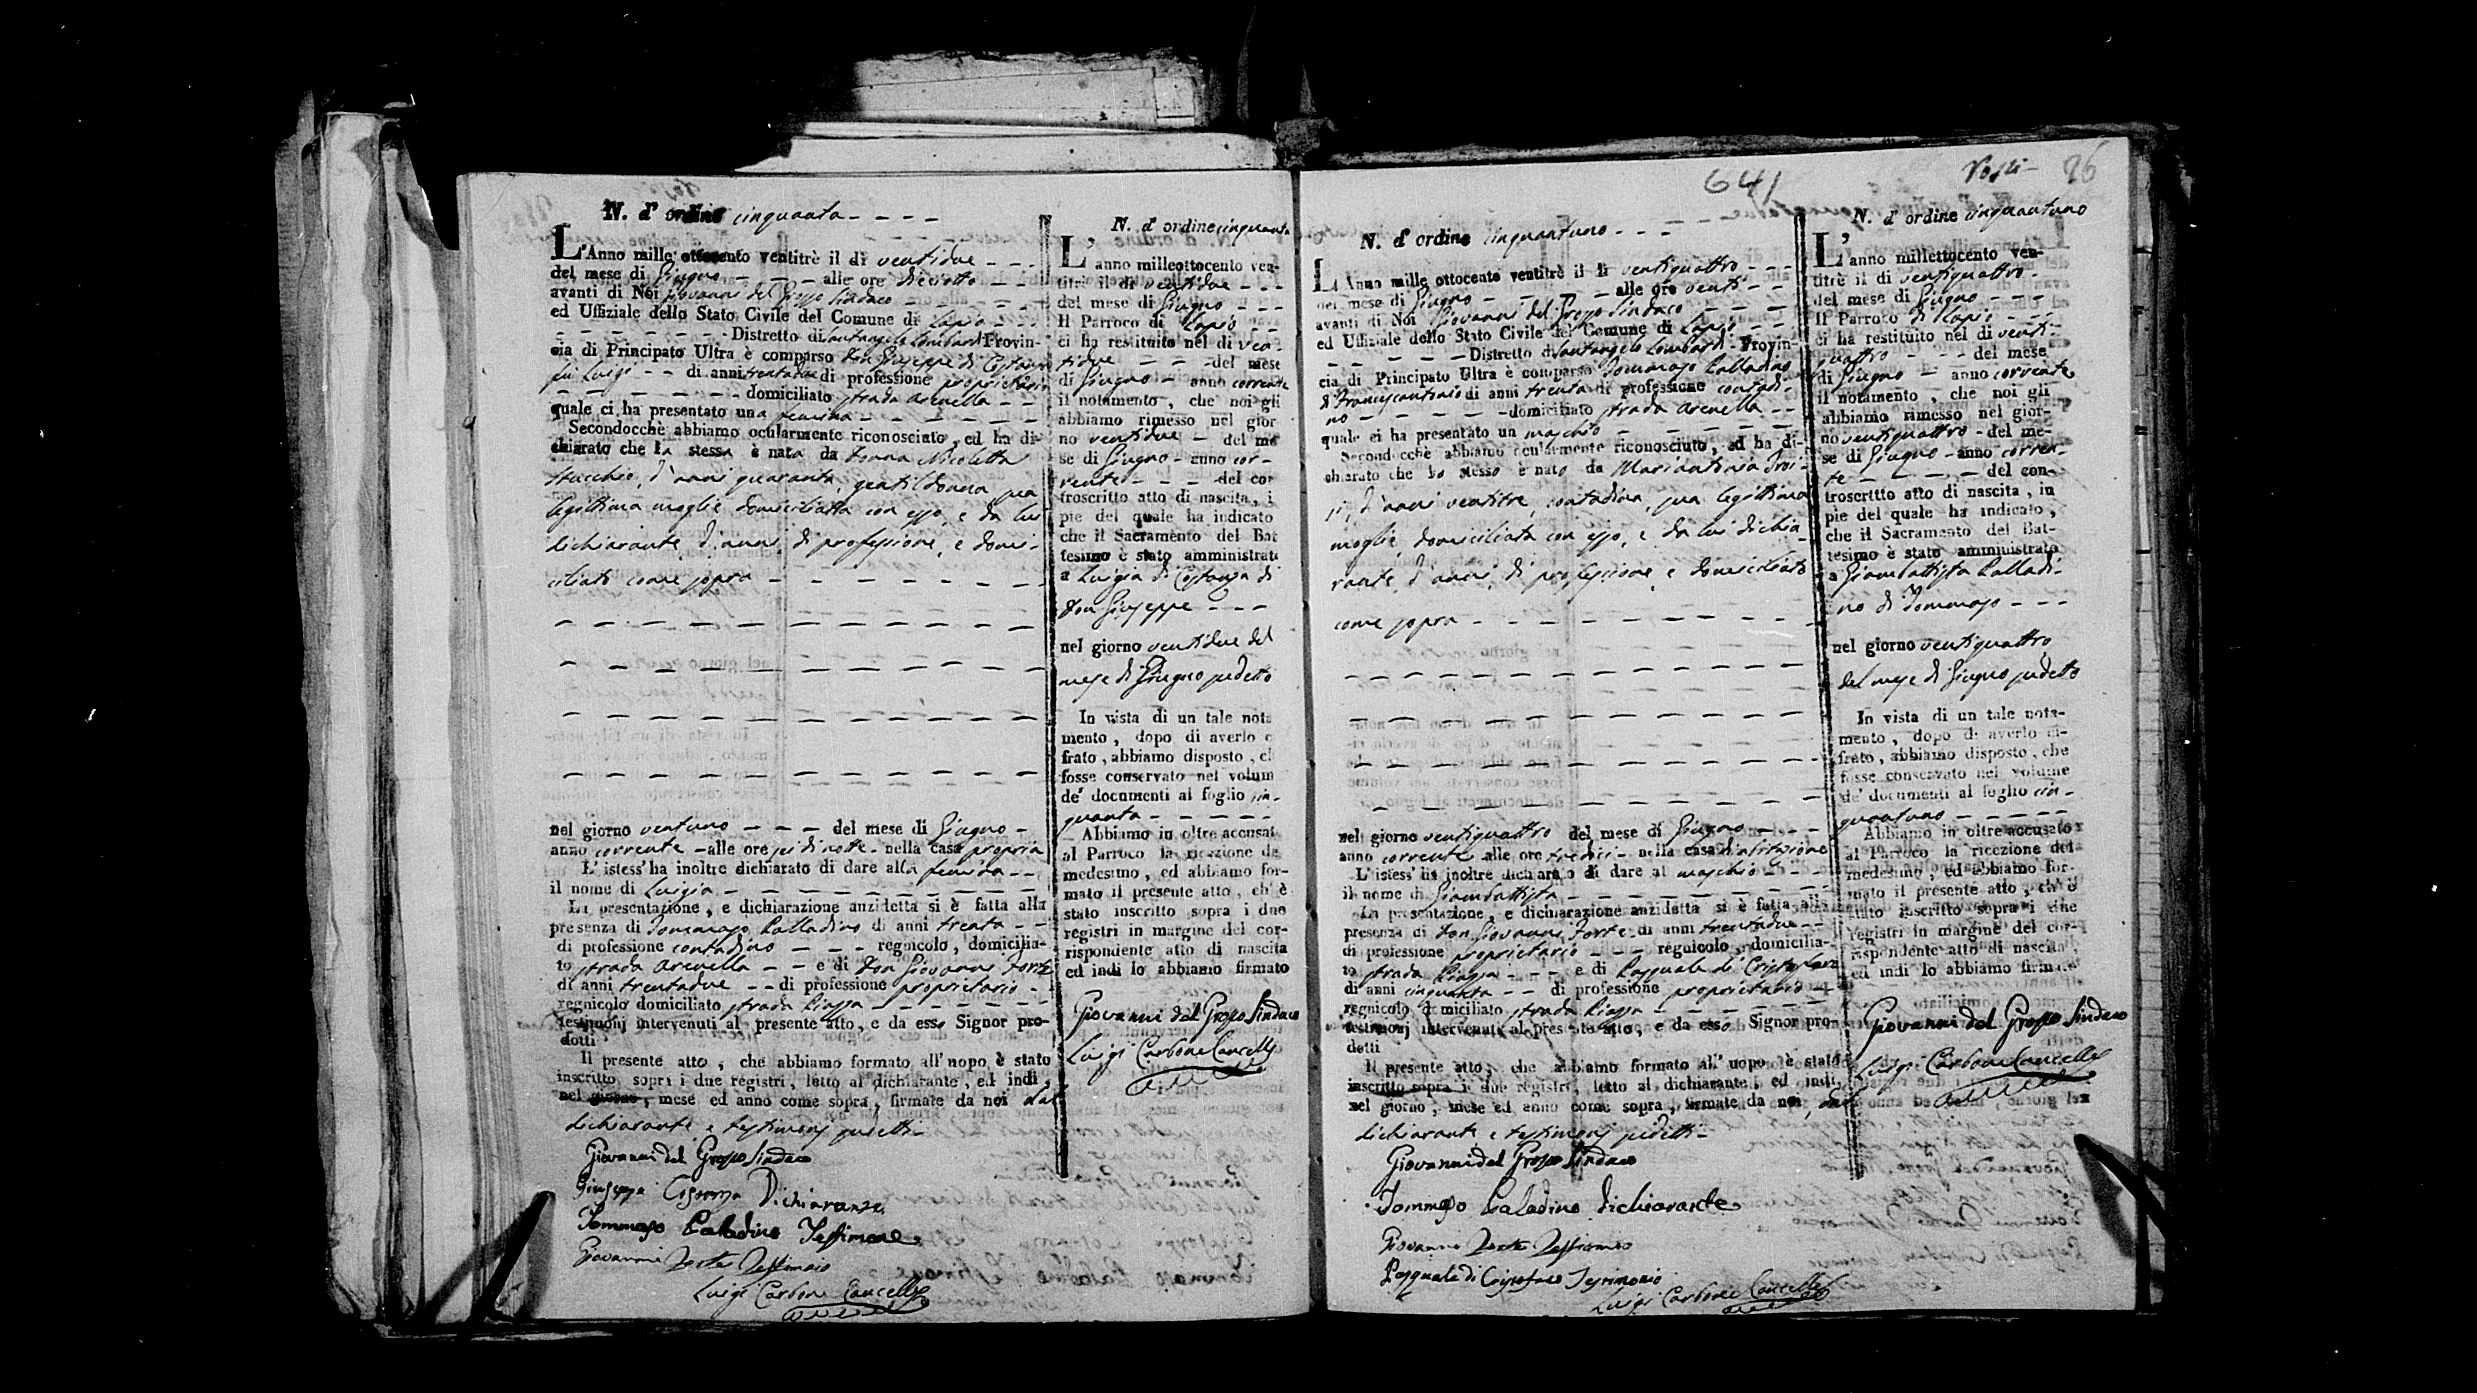 N. d' ordine cinquanta - - - -
L'Anno mille ottocento ventitrè il dì ventidue - - -
del mese di Giugno - - - alle ore dieciotto - -
avanti di Noi Giovanni del Grosso Sindaco - - - -
ed Uffiziale dello Stato Civile del Comune di Lapio - - -
- - - - - - - Distretto di Santangelo Lombardi Provin-
cia di Principato Ultra è comparso Don Giuseppe di Costanza
fu Luigi - - di anni trentadue di professione proprietario
- - - - - - - domiciliato strada Arenella - -
quale ci ha presentato una femina - - - - - -
Secondocchè abbiamo ocularmente riconosciuto, ed ha di-
chiarato che la stessa è nata da Donna Nicoletta
Stucchio, d'anni quaranta, gentildonna sua
legittima moglie domiciliata con esso, e da lui
dichiarante, d'anni, di professione, e domi-
ciliati come sopra - - - - - - -
nel giorno ventuno - - - del mese di Giugno -
anno corrente - alle ore sei di notte - nella casa propria
L'istess' ha inoltre dichiarato di dare alla femina - -
il nome di Luigia - - - - - - - -
La presentazione, e dichiarazione anzidetta si è fatta alla
presenza di Tommaso Palladino di anni trenta - -
di professione contadino - - - regnicolo, domicilia-
to strada Arenella - - e di Don Giovanni Forte
di anni trentadue - - di professione proprietario -
regnicolo domiciliato strada Piazza - - - - - -
testimonj intervenuti al presente atto, e da esso Signor pro-
dotti
Il presente atto, che abbiamo formato all' uopo è stato
inscritto sopra i due registri, letto al dichiarante, ed indi
nel giorno, mese ed anno come sopra, firmate da noi dal
dichiarante e testimonj sudetti -
Giovanni del Grosso Sindaco
Giuseppe Costanza Dichiarante
Tommaso Paladino Testimone
Giovanni Forte Testimonio
Luigi Carbone Cancelle
N. d' ordine cinquanta
L' anno milleottocento ven-
titrè il dì ventidue - - -
del mese di Giugno - - -
Il Parroco di Lapio - -
ci ha restituito nel dì ven-
tidue - - - del mese
di Giugno - anno corrente
il notamento, che noi gli
abbiamo rimesso nel gior
no ventidue - del me
se di Giugno - anno cor-
rente - - - del con
troscritto atto di nascita, i
piè del quale ha indicato
che il Sacramento del Bat
tesimo è stato amministrato
a Luigia di Costanza di
Don Giuseppe - - -
nel giorno ventidue del
mese di Giugno sudetto
In vista di un tale nota
mento, dopo di averlo c
frato, abbiamo disposto, ch
fosse conservato nel volum
de' documenti al foglio cin-
quanta - - - - - -
Abbiamo in oltre accusat
al Parroco la ricezione de
medesimo, ed abbiamo for-
mato il presente atto, ch' è
stato inscritto sopra i due
registri in margine del cor-
rispondente atto di nascita
ed indi lo abbiamo firmato
Giovanni del Grosso Sindaco
Luigi Carbone Cancelle
641
76
N. d' ordine cinquantuno - - -
L'Anno mille ottocento ventitrè il dì ventiquattro - - -
del mese di Giugno - - - - alle ore venti - -
avanti di Noi Giovanni del Grosso Sindaco - - -
ed Uffiziale dello Stato Civile del Comune di Lapio - -
- - - - - Distretto di Santangelo Lombardi Provin-
cia di Principato Ultra è comparso Tommaso Palladino
di Francescantonio di anni trenta di professione contadi-
no - - - - - - domiciliato strada Arenella - -
quale ci ha presentato un maschio - - - - - -
Secondocchè abbiamo ocularmente riconosciuto, ed ha di-
chiarato che lo stesso è nato da Mariantonia Troi-
si, d'anni ventitre, contadina, sua legittima
moglie, domiciliata con esso, e da lui dichia
rante, d'anni, di professione, e domiciliato
come sopra - - - - - - - -
nel giorno ventiquattro del mese di Giugno - - -
anno corrente alle ore tredici - nella casa d'abitazione
L'istess' ha inoltre dichiarato di dare al maschio - - -
il nome di Giambattista - - - - - -
La presentazione, e dichiarazione anzidetta si è fatta alla
presenza di Don Giovanni Forte di anni trentadue - -
di professione proprietario - - - regnicolo, domicilia-
to strada Piazza - - - e di Pasquale di Cristofaro
di anni cinquanta - - di professione proprietario -
regnicolo domiciliato strada Piazza - - - - -
testimonj intervenuti al presente atto, e da esso Signor pro-
dotti
Il presente atto, che abbiamo formato all' uopo è stato
inscritto sopra i due registri, letto al dichiarante, ed indi
nel giorno, mese ed anno come sopra, firmate da noi, dal
dichiarante e testimonj sudetti -
Giovanni del Grosso Sindaco
Tommaso Paladino dichiarante
Giovanni Forte Testimonio
Pasquale di Cristofaro Testimonio
Luigi Carbone Cancelle
N. d' ordine cinquantuno
L' anno millettocento ven-
titrè il dì ventiquattro -
del mese di Giugno - - -
Il Parroco di Lapio - - -
ci ha restituito nel dì venti-
quattro - - - del mese
di Giugno - anno corrente
il notamento, che noi gli
abbiamo rimesso nel gior-
no ventiquattro - del me-
se di Giugno - anno corren-
te - - - - - del con-
troscritto atto di nascita, in
piè del quale ha indicato,
che il Sacramento del Bat-
tesimo è stato amministrato
a Giambattista Palladi-
no di Tommaso - - -
nel giorno ventiquattro
del mese di Giugno sudetto
In vista di un tale nota-
mento, dopo di averlo ci-
frato, abbiamo disposto, che
fosse conservato nel volume
de' documenti al foglio cin-
quantuno - - - - -
Abbiamo in oltre accusato
al Parroco la ricezione del
medesimo, ed abbiamo for-
mato il presente atto, ch' è
stato inscritto sopra i due
registri in margine del cor-
rispondente atto di nascita,
ed indi lo abbiamo firmato
Giovanni del Grosso Sindaco
Luigi Carbone Cancelle